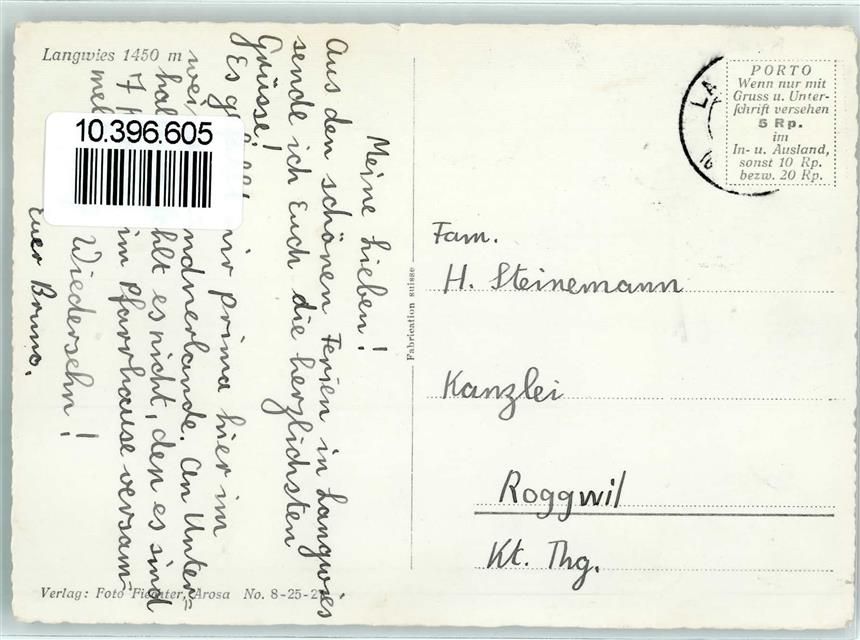 Langwies 1450 m
10.396.605
Meine Lieben!
Aus den schönen Ferien in Langwies
sende ich Euch die herzlichsten
Grüsse!
Es mir prima hier im
ndnerlande. An Unter=
hlt es nicht, den es sind
7 im Pfarrhause versam
Wiedersehn!
Euer Bruno.
Verlag: Foto Fiechter, Arosa No. 8-25-2
Fabrication suisse
LA
PORTO
Wenn nur mit
Gruss u. Unter-
schrift versehen
5 Rp.
im
In- u. Ausland,
sonst 10 Rp.
bezw. 20 Rp.
Fam.
H. Steinemann
Kanzlei
Roggwil
Kt. Thg.